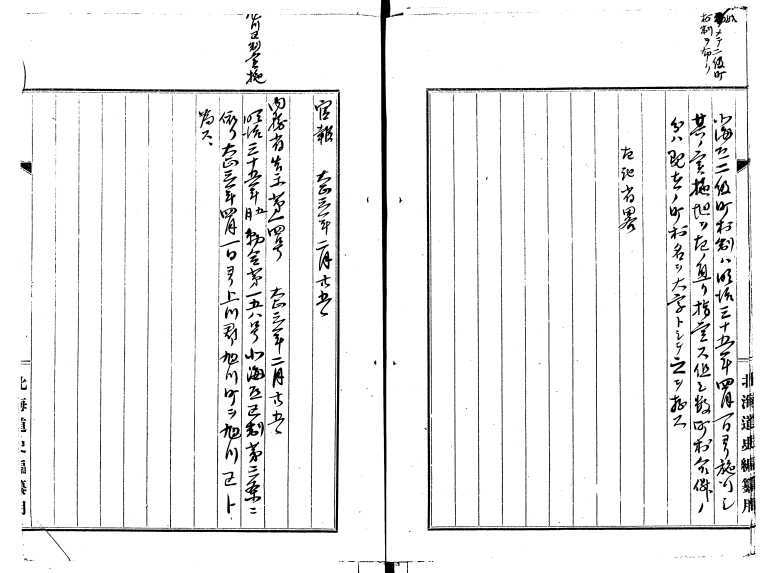 テ二級町
村制ヲ布ク
北海道二級町村制ハ明治三十五年四月一日ヨリ施行シ
其ノ実施地ヲ左ノ通リ指定ス但シ数町村合併ノ
分ハ現在ノ町村名ヲ大字トシテ之ヲ存ス
左記省略
北海道史編纂用
旭川区制実施
官報 大正三年二月廿五日
内務省告示第一四号 大正三年二月廿五日
明治三十五年勅令第一五八号北海道区制第二条ニ
依リ大正三年四月一日ヨリ上川郡旭川町ヲ旭川区ト
為ス、
北海道史編纂用